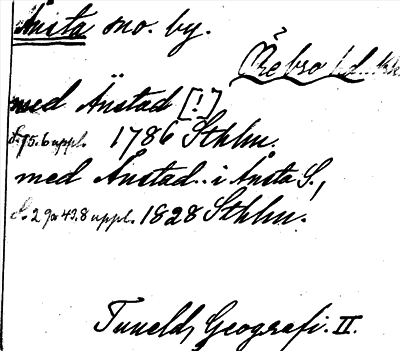 Ånsta sno. by.
Örebro ld. kk.
med Änstad [!]
S. 75. 6 uppl. 1786 Sthlm.
med Ånstad i Ånsta S.,
S. 2 9a 43. 8 uppl. 1828 Sthlm.
Tuneld, Geografi. II.